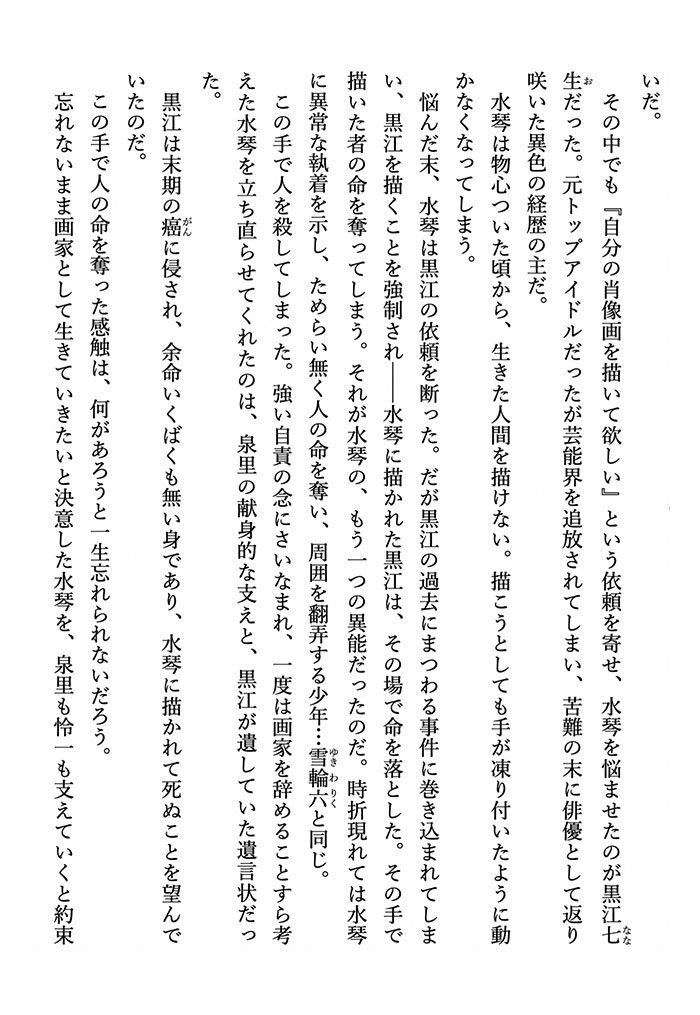 いだ。
　その中でも『自分の肖像画を描いて欲しい』という依頼を寄せ、水琴を悩ませたのが黒江七
生だった。元トップアイドルだったが芸能界を追放されてしまい、苦難の末に俳優として返り
咲いた異色の経歴の主だ。
　水琴は物心ついた頃から、生きた人間を描けない。描こうとしても手が凍り付いたように動
かなくなってしまう。
　悩んだ末、水琴は黒江の依頼を断った。だが黒江の過去にまつわる事件に巻き込まれてしま
い、黒江を描くことを強制され――水琴に描かれた黒江は、その場で命を落とした。その手で
描いた者の命を奪ってしまう。それが水琴の、もう一つの異能だったのだ。時折現れては水琴
に異常な執着を示し、ためらい無く人の命を奪い、周囲を翻弄する少年…雪輪六と同じ。
　この手で人を殺してしまった。強い自責の念にさいなまれ、一度は画家を辞めることすら考
えた水琴を立ち直らせてくれたのは、泉里の献身的な支えと、黒江が遺していた遺言状だっ
た。
　黒江は末期の癌に侵され、余命いくばくも無い身であり、水琴に描かれて死ぬことを望んで
いたのだ。
　この手で人の命を奪った感触は、何があろうと一生忘れられないだろう。
　忘れないまま画家として生きていきたいと決意した水琴を、泉里も怜一も支えていくと約束